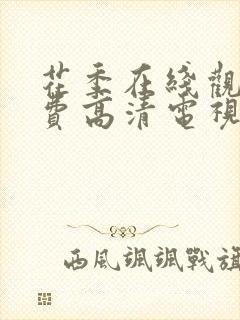 在线觀
費高清電視
西風颯颯戰旗